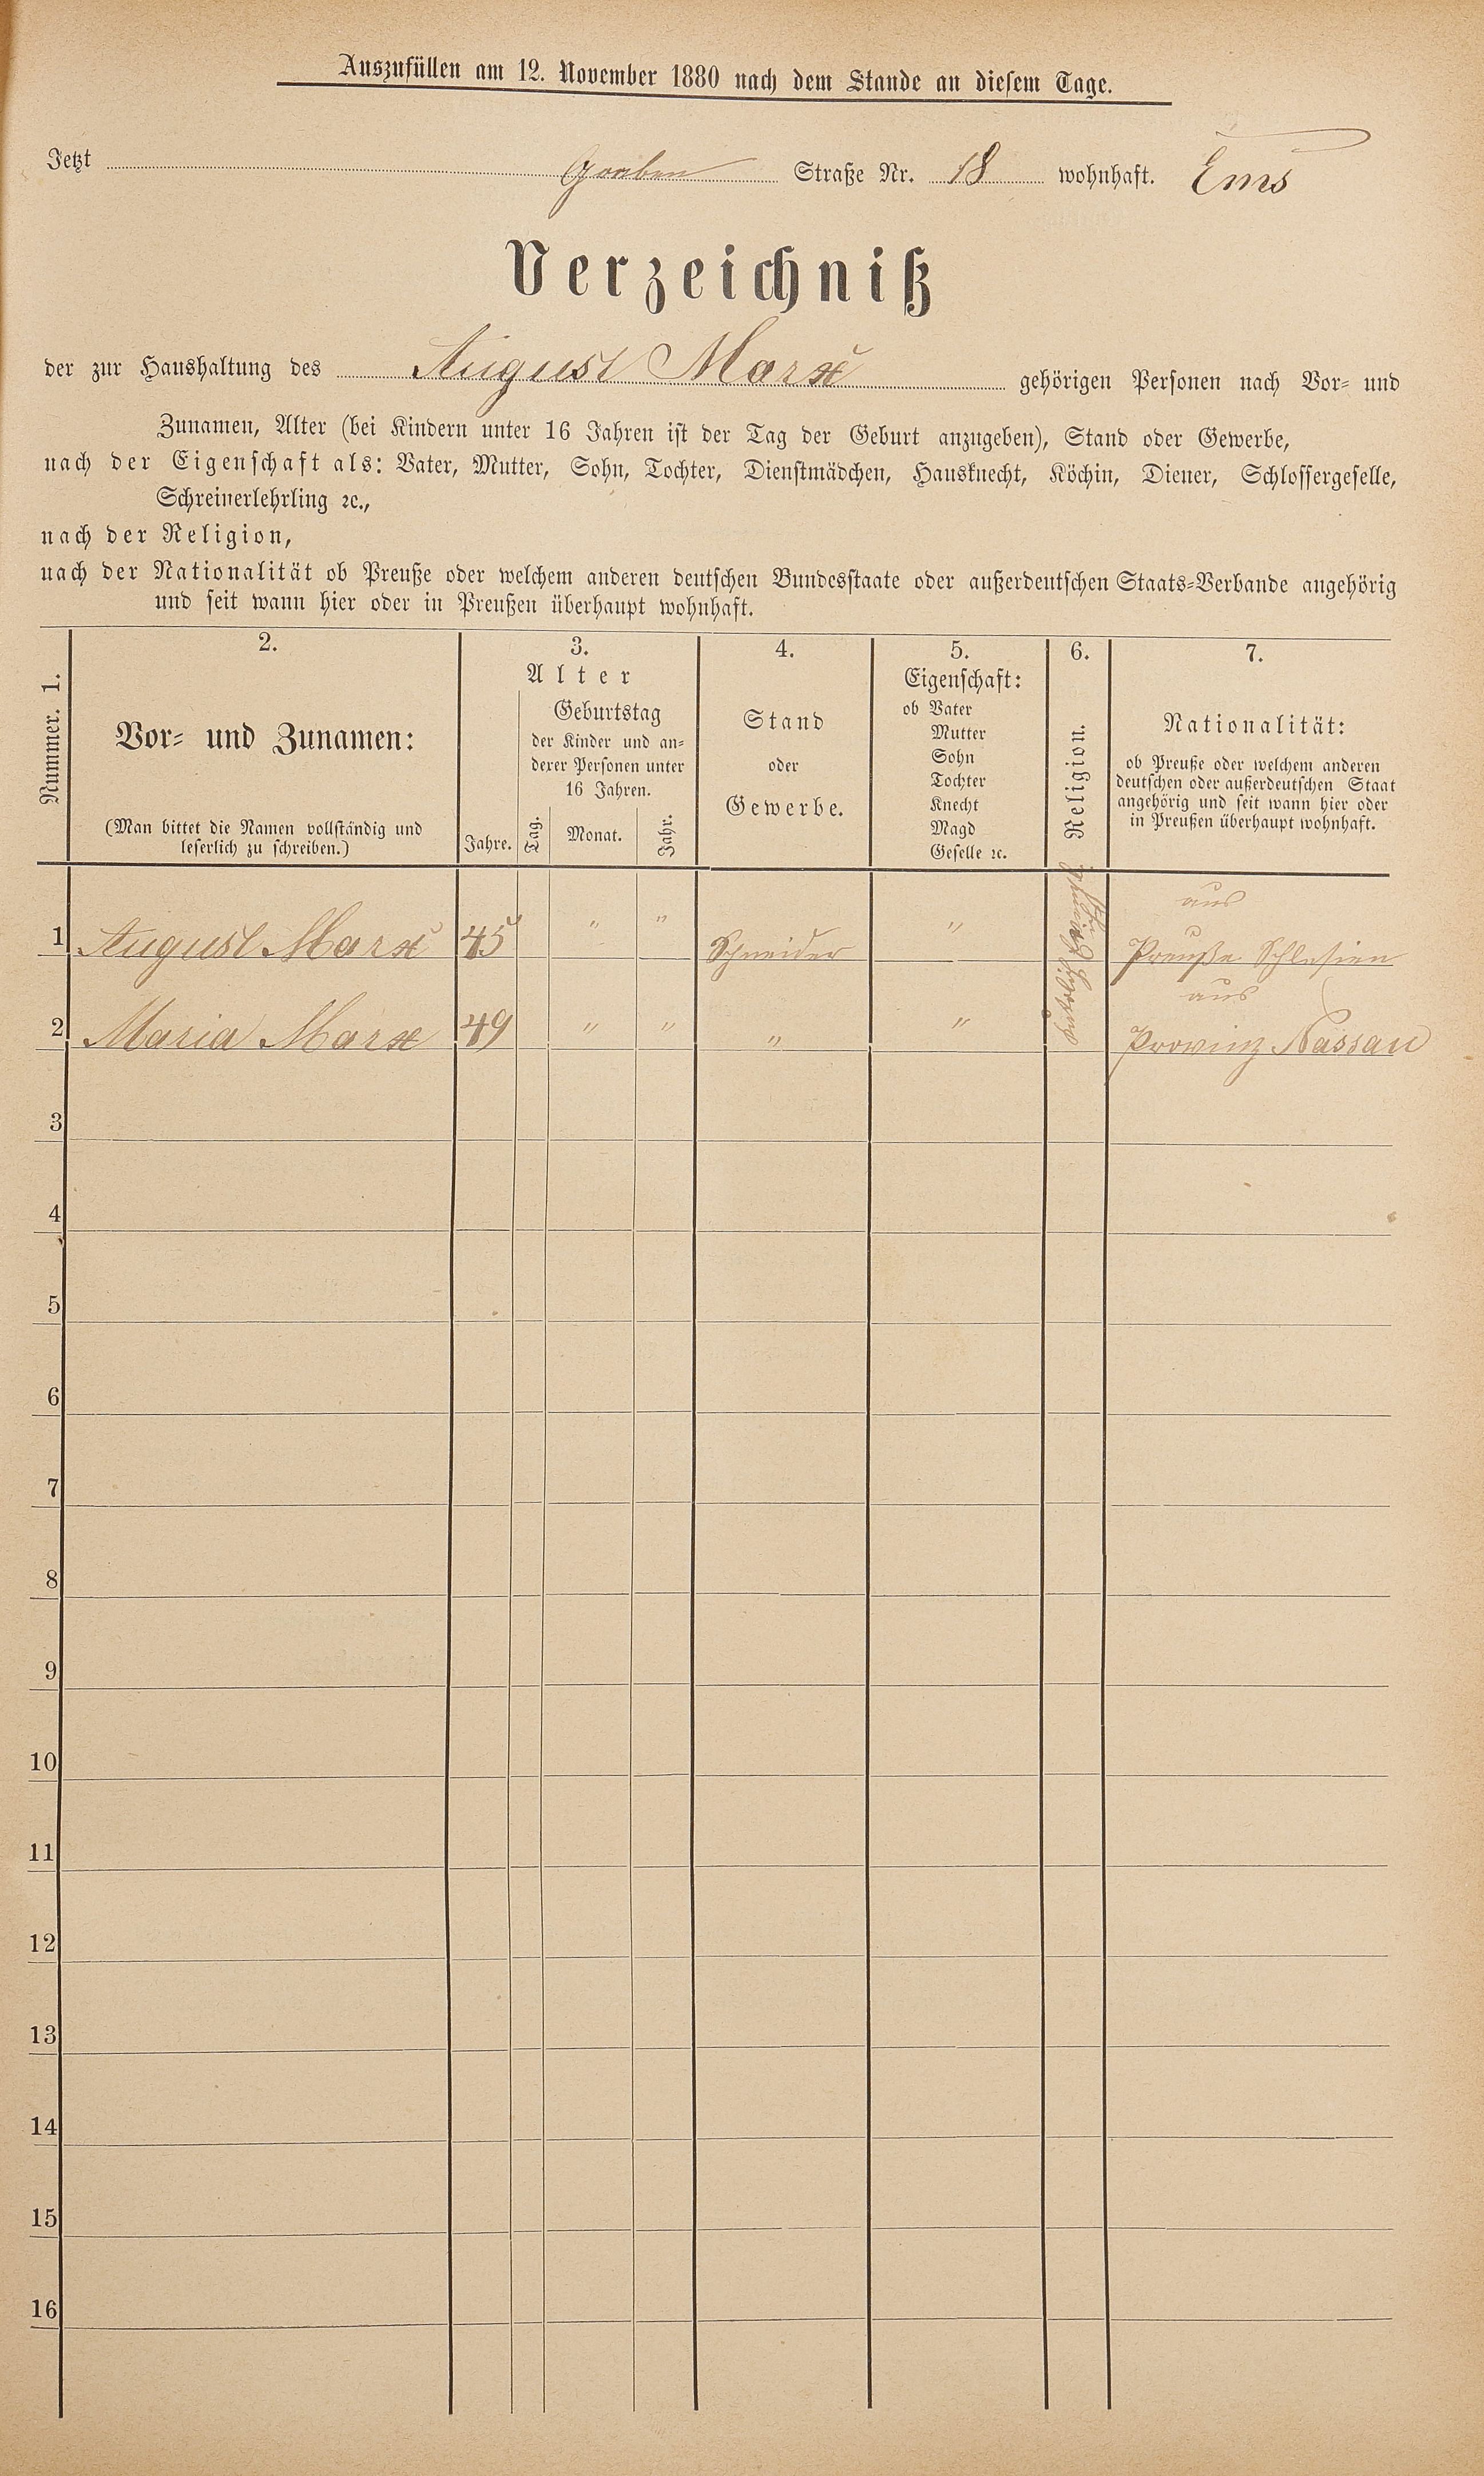 Auszufüllen am 12. November 1880 nach dem Stande an diesem Tage.
Jetzt Graben Straße Nr. 18 wohnhaft. Ems
Verzeichniß
der zur Haushaltung des August Marx gehörigen Personen nach Vor- und
Zunamen, Alter (bei Kindern unter 16 Jahren ist der Tag der Geburt anzugeben), Stand oder Gewerbe,
nach der Eigenschaft als: Vater, Mutter, Sohn, Tochter, Dienstmädchen, Hausknecht, Köchin, Diener, Schlossergeselle,
Schreinerlehrling ꝛc.,
nach der Religion,
nach der Nationalität ob Preuße oder welchem anderen deutschen Bundesstaate oder außerdeutschen Staats-Verbande angehörig
und seit wann hier oder in Preußen überhaupt wohnhaft.
Nummer. 1.
2.
Vor- und Zunamen:
(Man bittet die Namen vollständig und
leserlich zu schreiben.)
3.
Alter
Jahre.
Geburtstag
der Kinder und an-
derer Personen unter
16 Jahren.
Tag.
Monat.
Jahr.
4.
Stand
oder
Gewerbe.
5.
Eigenschaft:
ob Vater
Mutter
Sohn
Tochter
Knecht
Magd
Geselle ꝛc.
6.
Religion.
7.
Nationalität:
ob Preuße oder welchem anderen
deutschen oder außerdeutschen Staat
angehörig und seit wann hier oder
in Preußen überhaupt wohnhaft.
1 August Marx 45 " " Schneider " aus
Preuße Schlesien
2 Maria Marx 49 " " " " aus
Provinz Nassau
3
4
5
6
7
8
9
10
11
12
13
14
15
16